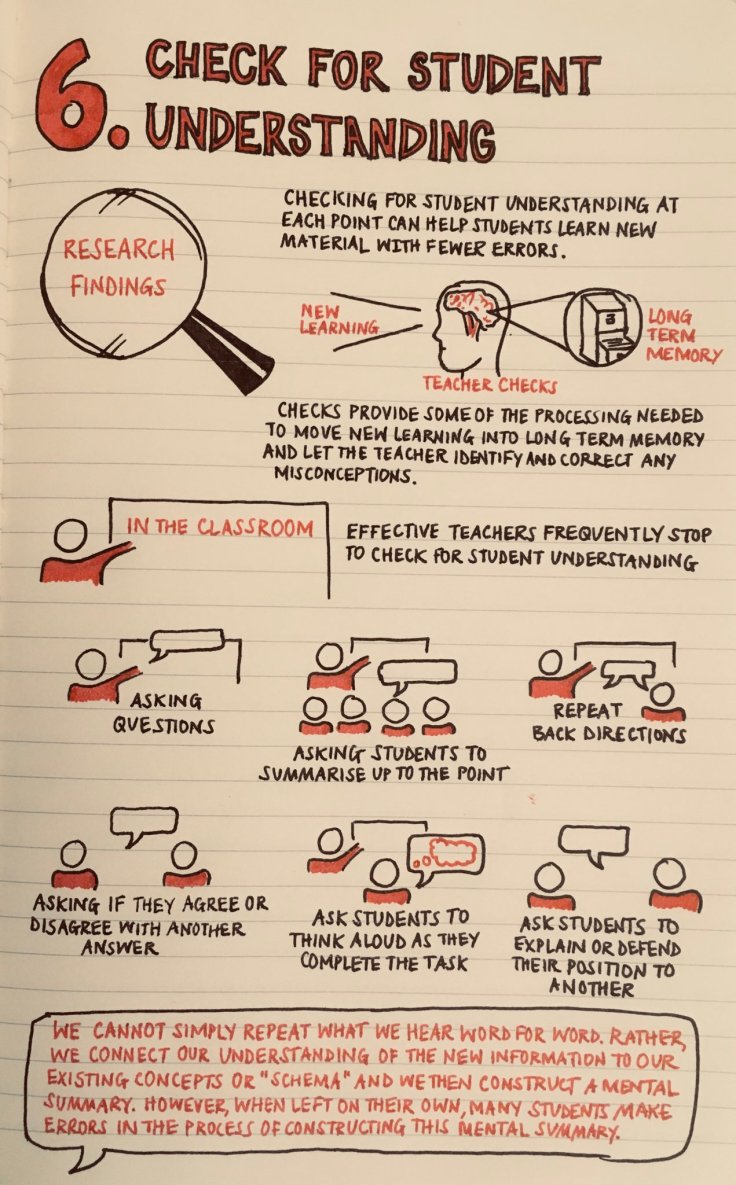 6. CHECK FOR STUDENT
UNDERSTANDING
RESEARCH
FINDINGS
CHECKING FOR STUDENT UNDERSTANDING AT
EACH POINT CAN HELP STUDENTS LEARN NEW
MATERIAL WITH FEWER ERRORS.
NEW
LEARNING
LONG
TERM
MEMORY
TEACHER CHECKS
CHECKS PROVIDE SOME OF THE PROCESSING NEEDED
TO MOVE NEW LEARNING INTO LONG TERM MEMORY
AND LET THE TEACHER IDENTIFY AND CORRECT ANY
MISCONCEPTIONS.
IN THE CLASSROOM
EFFECTIVE TEACHERS FREQUENTLY STOP
TO CHECK FOR STUDENT UNDERSTANDING
ASKING
QUESTIONS
ASKING STUDENTS TO
SUMMARISE UP TO THE POINT
REPEAT
BACK DIRECTIONS
ASKING IF THEY AGREE OR
DISAGREE WITH ANOTHER
ANSWER
ASK STUDENTS TO
THINK ALOUD AS THEY
COMPLETE THE TASK
ASK STUDENTS TO
EXPLAIN OR DEFEND
THEIR POSITION TO
ANOTHER
WE CANNOT SIMPLY REPEAT WHAT WE HEAR WORD FOR WORD. RATHER,
WE CONNECT OUR UNDERSTANDING OF THE NEW INFORMATION TO OUR
EXISTING CONCEPTS OR "SCHEMA" AND WE THEN CONSTRUCT A MENTAL
SUMMARY. HOWEVER, WHEN LEFT ON THEIR OWN, MANY STUDENTS MAKE
ERRORS IN THE PROCESS OF CONSTRUCTING THIS MENTAL SUMMARY.